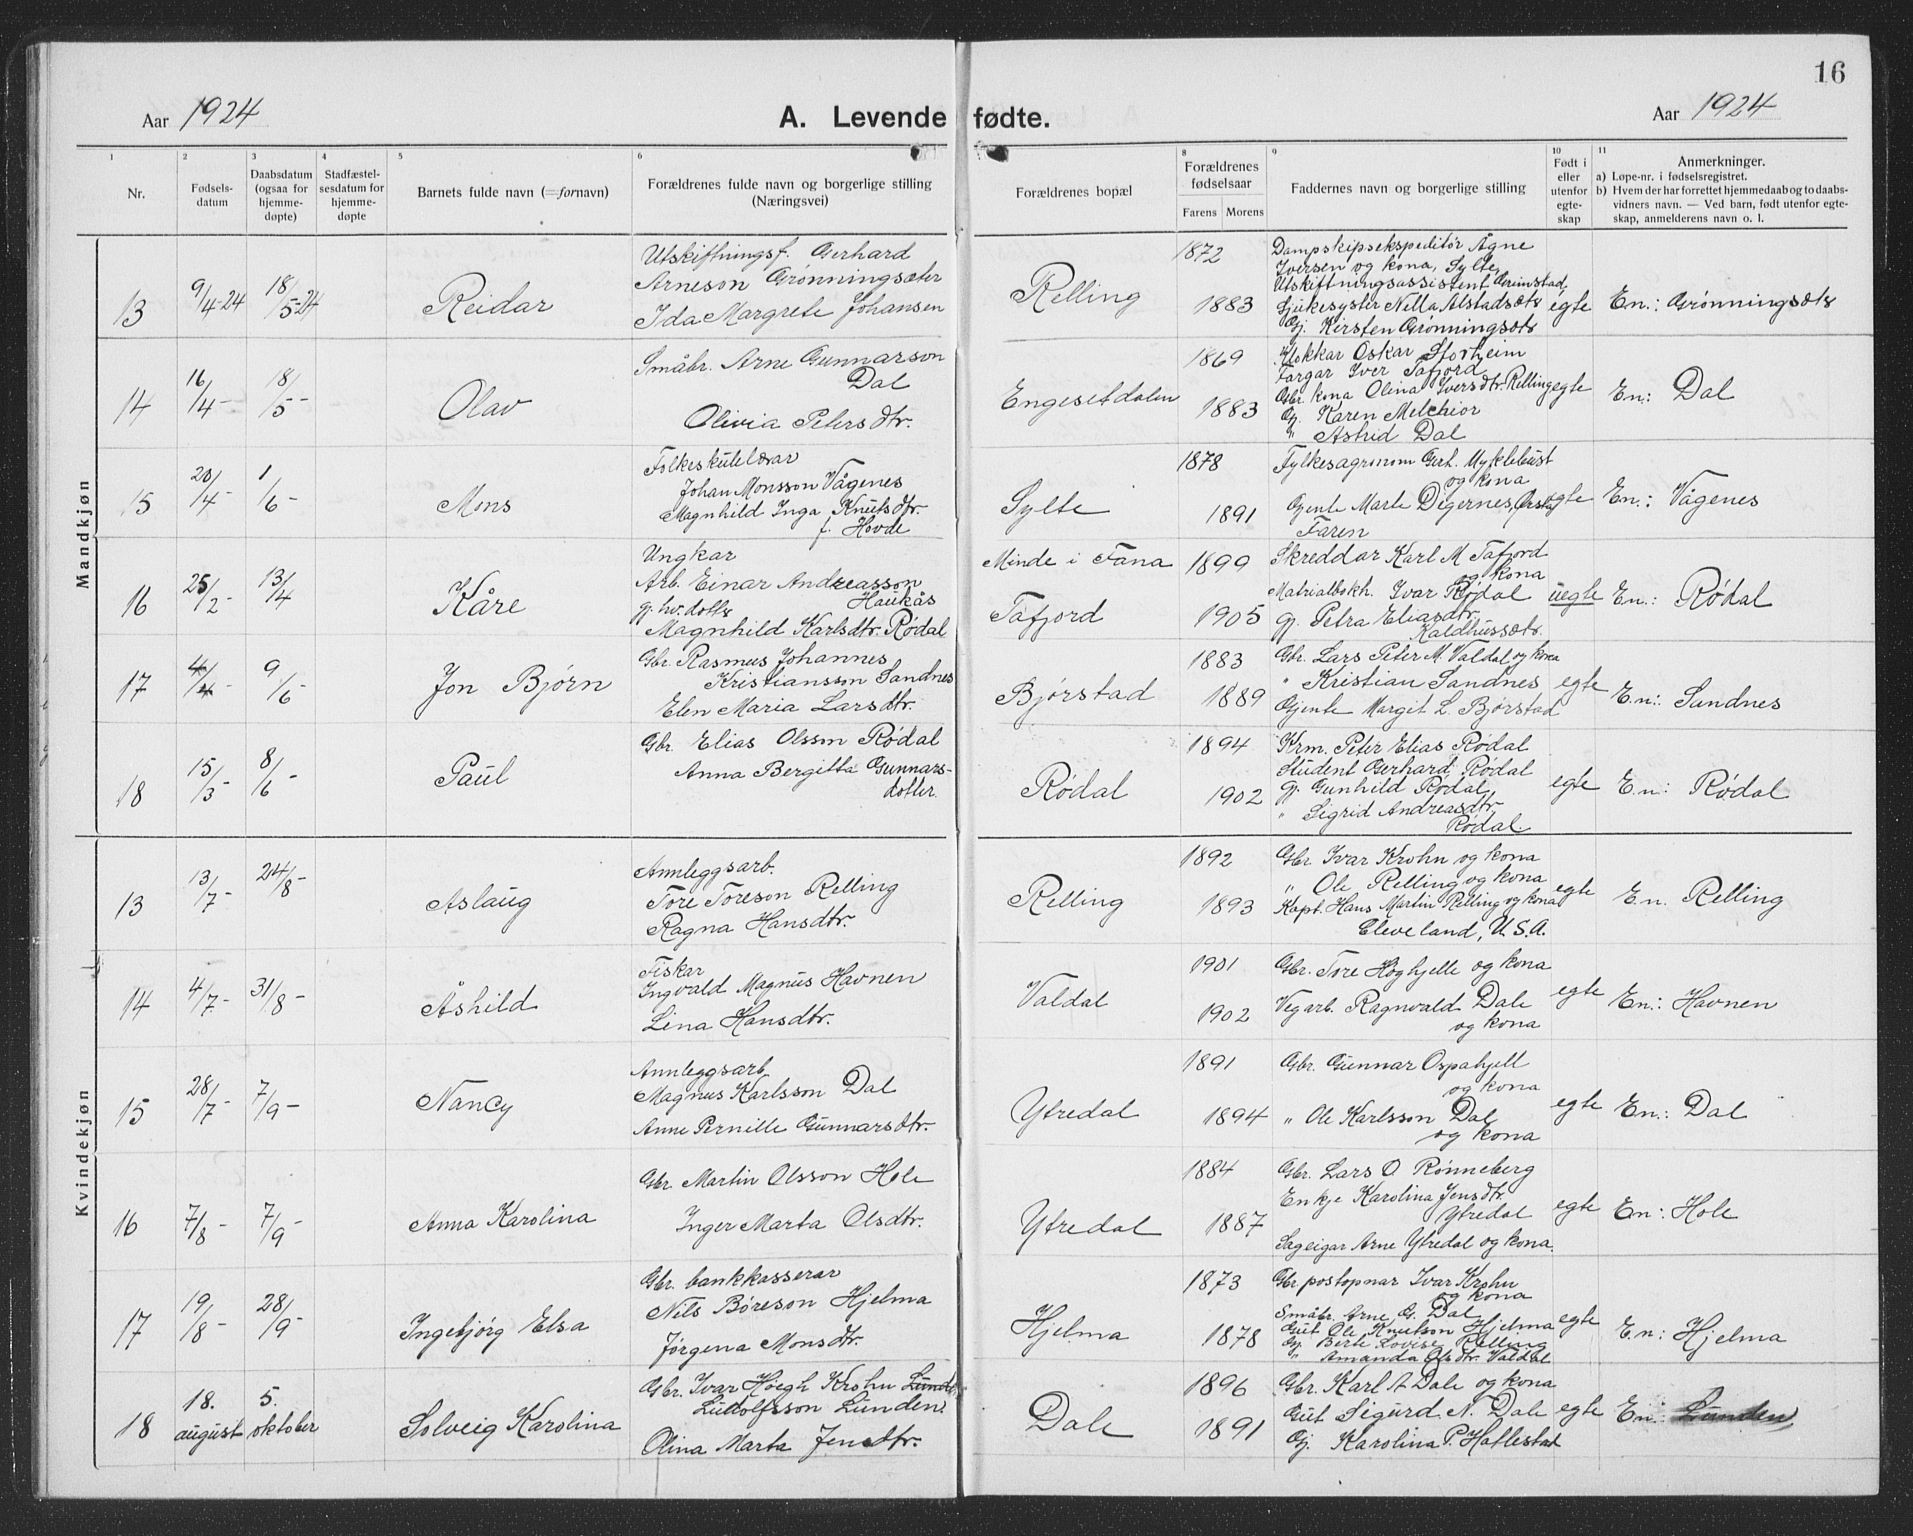 16
Aar 1924
A. Levende fødte.
Aar 1924
1
Nr.
2
Fødsels-
datum
3
Daabsdatum
(ogsaa for
hjemme-
døpte)
4
Stadfæstel-
sesdatum for
hjemme-
døpte
5
Barnets fulde navn (=fornavn)
6
Forældrenes fulde navn og borgerlige stilling
(Næringsvei)
Forældrenes bopæl
8
Forældrenes
fødselsaar
Farens Morens
9
Faddernes navn og borgerlige stilling
10
Født i
eller
utenfor
egte-
skap
11
Anmerkninger.
a) Løpe-nr. i fødselsregistret.
b) Hvem der har forrettet hjemmedaab og to daabs-
vidners navn. — Ved barn, født utenfor egte-
skap, anmelderens navn o. l.
Mandkjøn
13
9/4-24
18/5-24
Reidar
Utskiftningsf. Gerhard
Arneson Grønningsæter
Ida Margrete Johansen
Relling
1872
1883
Dampskipsekspeditør Ågne
Iversen og kona, Sylte,
Utskiftningsassistent Grimstad,
Sjukesyster Nella Alstadsæts
Gj. Kirsten Grønningsæts
egte
En.: Grønningsæts
14
16/4-
18/5-
Olav
Småbr. Arne Gunnarson
Dal
Olivia Petersdtr.
Engesetdalen
1869
1883
Klokkar Oskar Storheim
Fargar Iver Tafjord
Gbr. kona Olina Iversdtr. Relling
Gj. Karen Melchior
" Astrid Dal
egte
En.: Dal
15
20/4-
1/6-
Mons
Folkeskulelærar
Johan Monsson Vågenes
Magnhild Inga Knutsdtr.
f. Hovde
Sylte
1878
1891
Fylkesagronom Gerh. Myklebust
og kona
Gjente Marte Digernes, Ørskog
Faren
egte
En.: Vågenes
16
25/2-
13/4
Kåre
Ungkar
Arb. Einar Andreasson
Haukås
gj. hv. dotter
Magnhild Karlsdtr. Rødal
Minde i Fana
Tafjord
1899
1905
Skreddar Karl M Tafjord
og kona
Matrialbokh. Ivar Rødal
gj. Petra Eliasdtr.
Kaldhussæts.
uegte
En.: Rødal
17
4/4-
9/6-
Jon Bjørn
Gbr. Rasmus Johannes
Kristiansson Sandnes
Elen Maria Larsdtr.
Bjørstad
1883
1889
Gbr. Lars Peter M. Valdal og kona
" Kristian Sandnes
Gjente Margit L. Bjørstad
egte
En.: Sandnes
18
15/3-
8/6-
Paul
Gbr. Elias Olsson Rødal
Anna Bergitta Gunnars-
dotter
Rødal
1894
1902
Krm. Peter Elias Rødal
Student Gerhard Rødal
gj. Gunhild Rødal,
" Sigrid Andreasdtr.
Rødal
egte
En: Rødal
Kvindekjøn
13
13/7-
24/8-
Aslaug
Annleggsarb.
Tore Toreson Relling
Ragna Hansdtr.
Relling
1892
1893
Gbr. Ivar Krohn og kona
" Ole Relling og kona
Kapt. Hans Martin Relling og kona
Cleveland, U.S.A.
egte
En. Relling
14
4/7-
31/8-
Åshild
Fiskar
Ingvald Magnus Havnen
Lina Hansdtr.
Valdal
1901
1902
Gbr. Tore Høghjelle og kona
Vegarb. Ragnvald Dale
og kona
egte
En.: Havnen
15
28/7-
7/9-
Nancy
Annleggsarb.
Magnus Karlsson Dal
Anne Pernille Gunnarsdtr.
Ytredal
1891
1894
Gbr. Gunnar Ospahjell
og kona
" Ole Karlsson Dal
og kona
egte
En.: Dal
16
7/8-
7/9-
Anna Karolina
Gbr. Martin Olsson Hole
Inger Marta Olsdtr.
Ytredal
1884
1887
Gbr. Lars O Rønneberg
Enkje Karolina Jensdtr.
Ytredal
Sageigar Arne Ytredal og kona.
egte
En: Hole
17
19/8-
28/9-
Ingebjørg Elsa
Gbr. bankkasserar
Nils Børeson Hjelma
Jørgena Monsdtr.
Hjelma
1873
1878
Gbr. postopnar Ivar Krohn
og kona
Småbr. Arne G. Dal
Gut Ole Knutson Hjelma
Gj. Berte Lovise Relling
" Amanda Olsdtr. Valdal
egte
En: Hjelma
18
18.
august
5.
oktober
Solveig Karolina
Gbr. Ivar Høegh Krohn
Ludolfsson Lunden.
Olina Marta Jensdtr.
Dale
1896
1891
Gbr. Karl A Dale og kona
Gut Sigurd N. Dale
Gj. Karolina P. Hatlestad
egte
En: Lunden